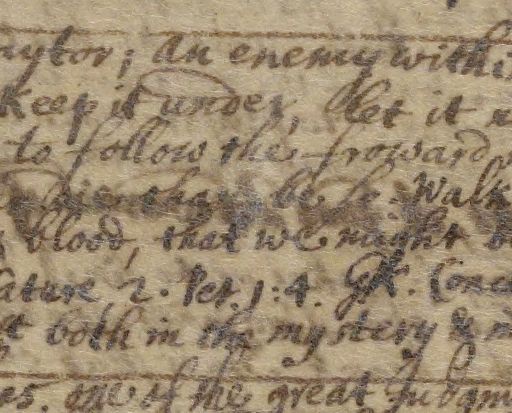 aytor; an enemy with
keep it under, let it
to follow the froward
be Walk
blood, that we might
ature 2. Pet. 1:4.
both in the mystery &
es. one of the great Judgm